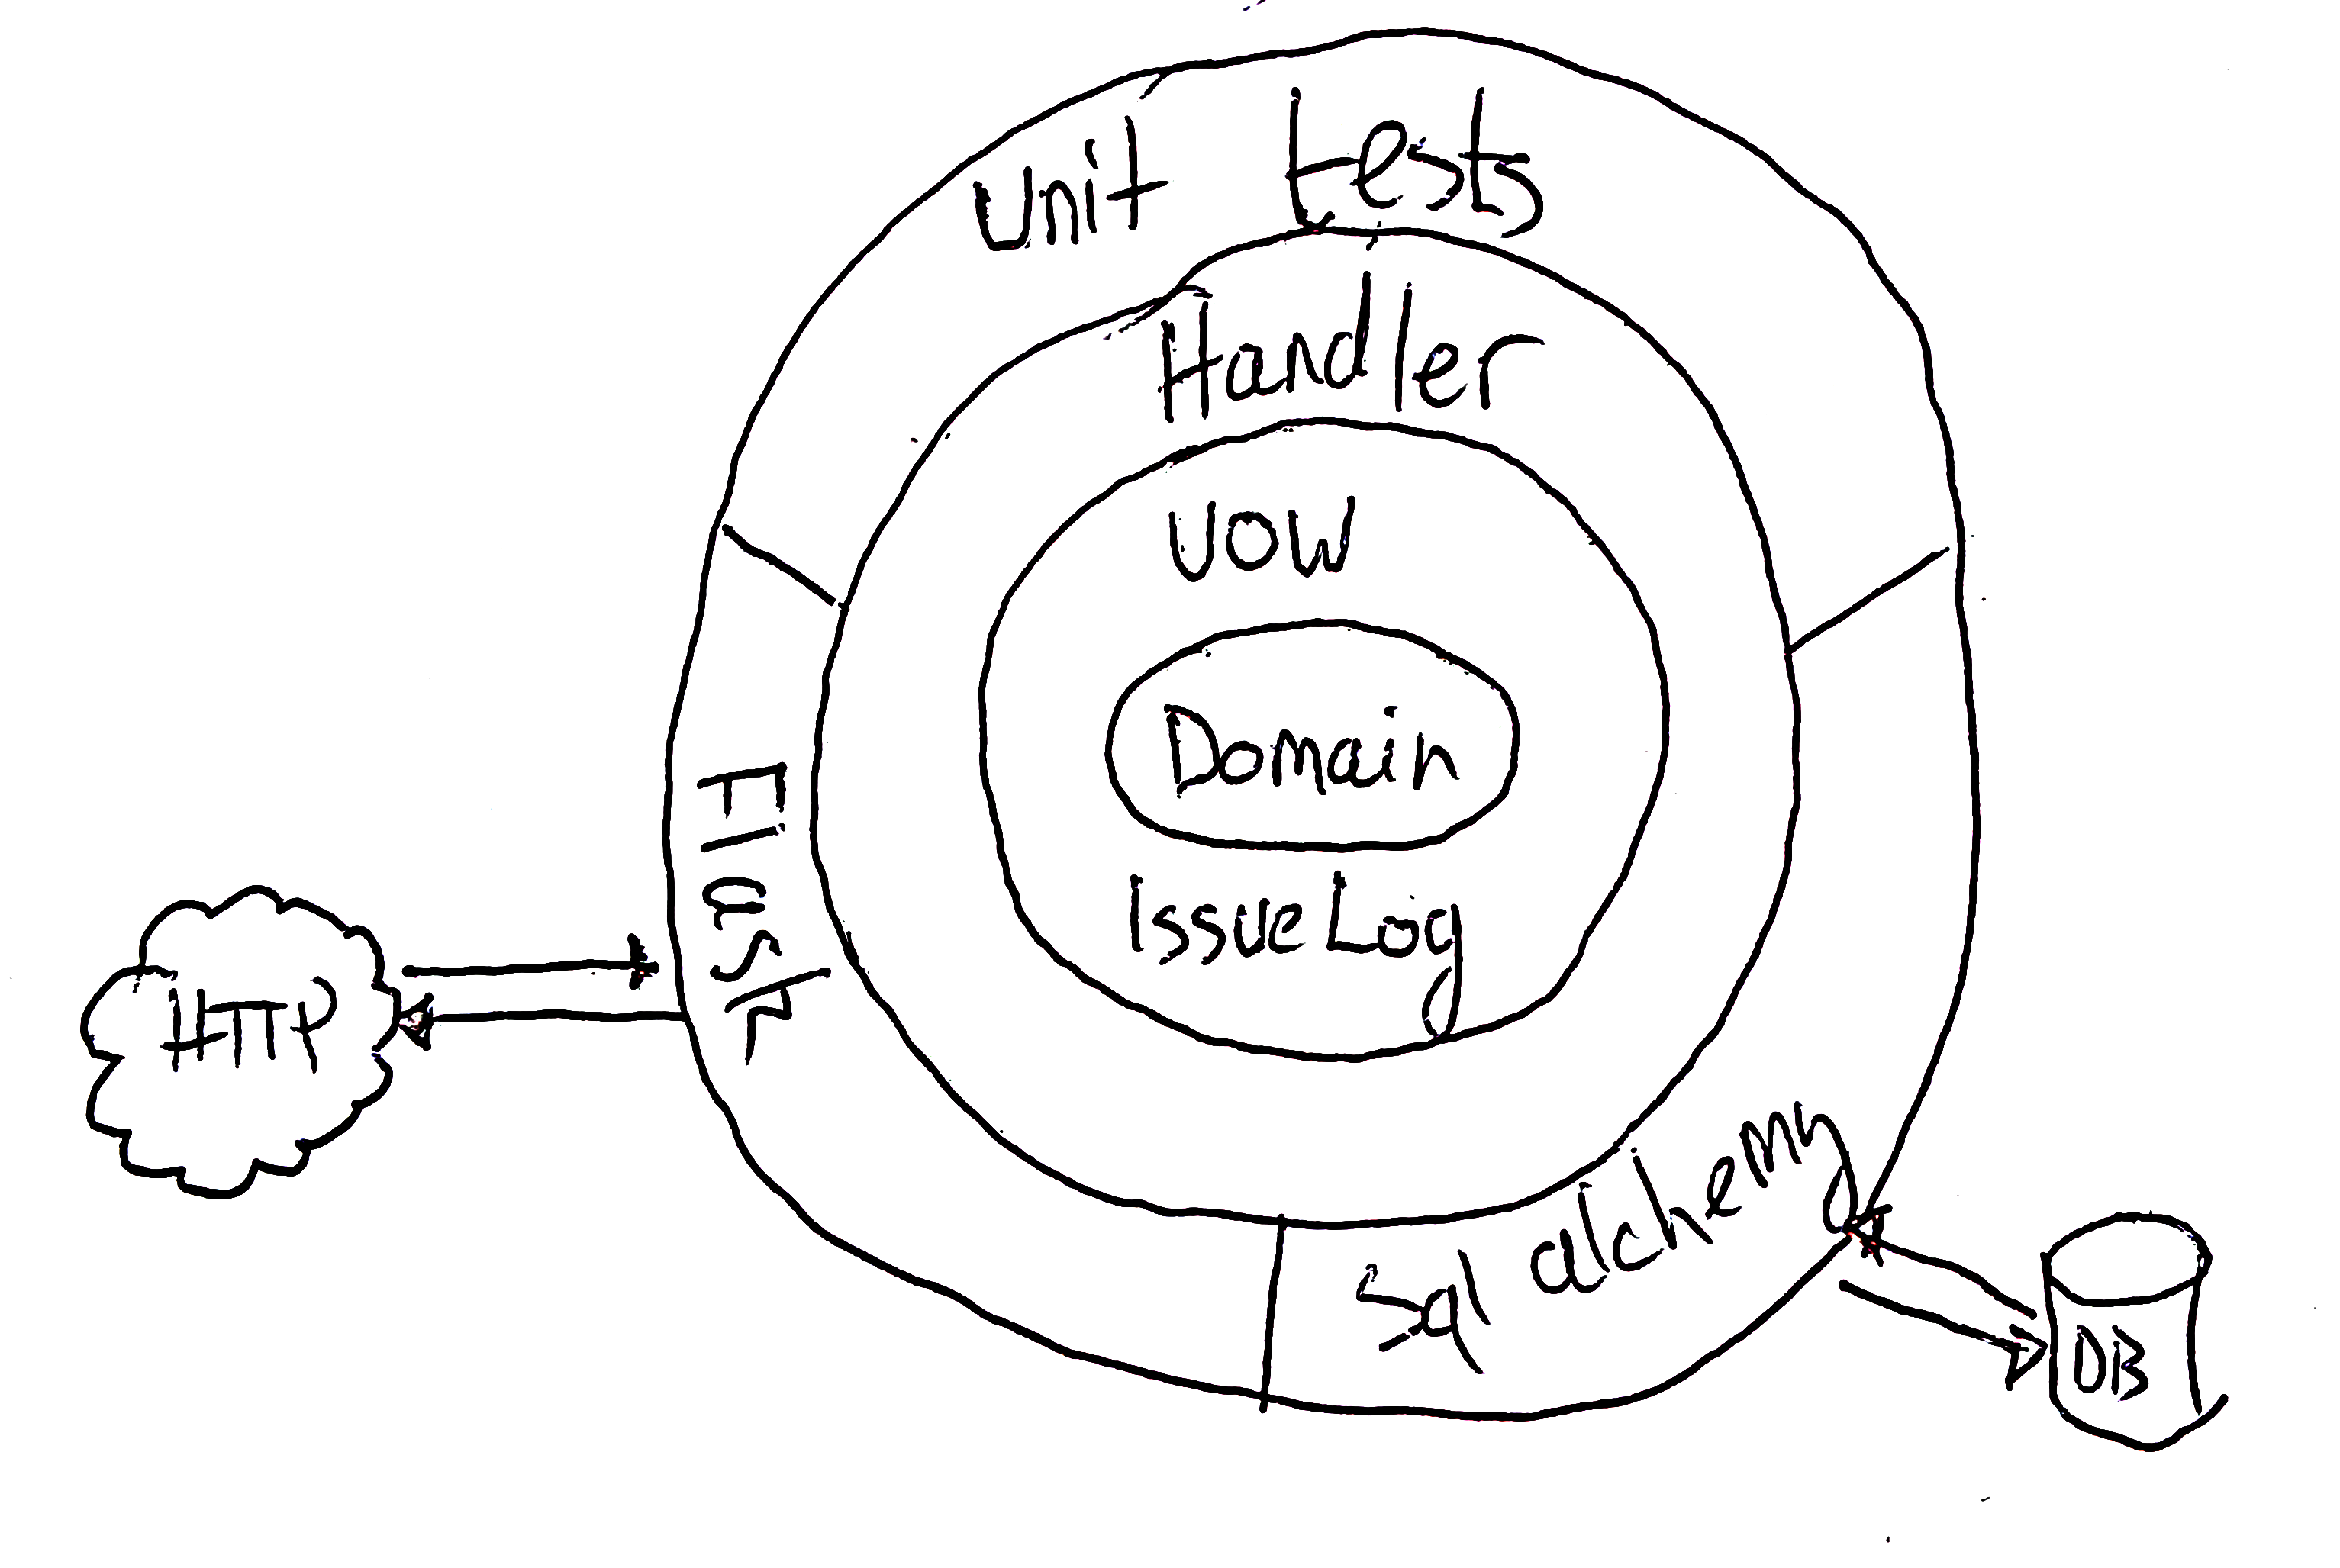 Unit tests
Handler
UOW
Domain
IssueLog
Flask
HTTP
Sql alchemy
DB